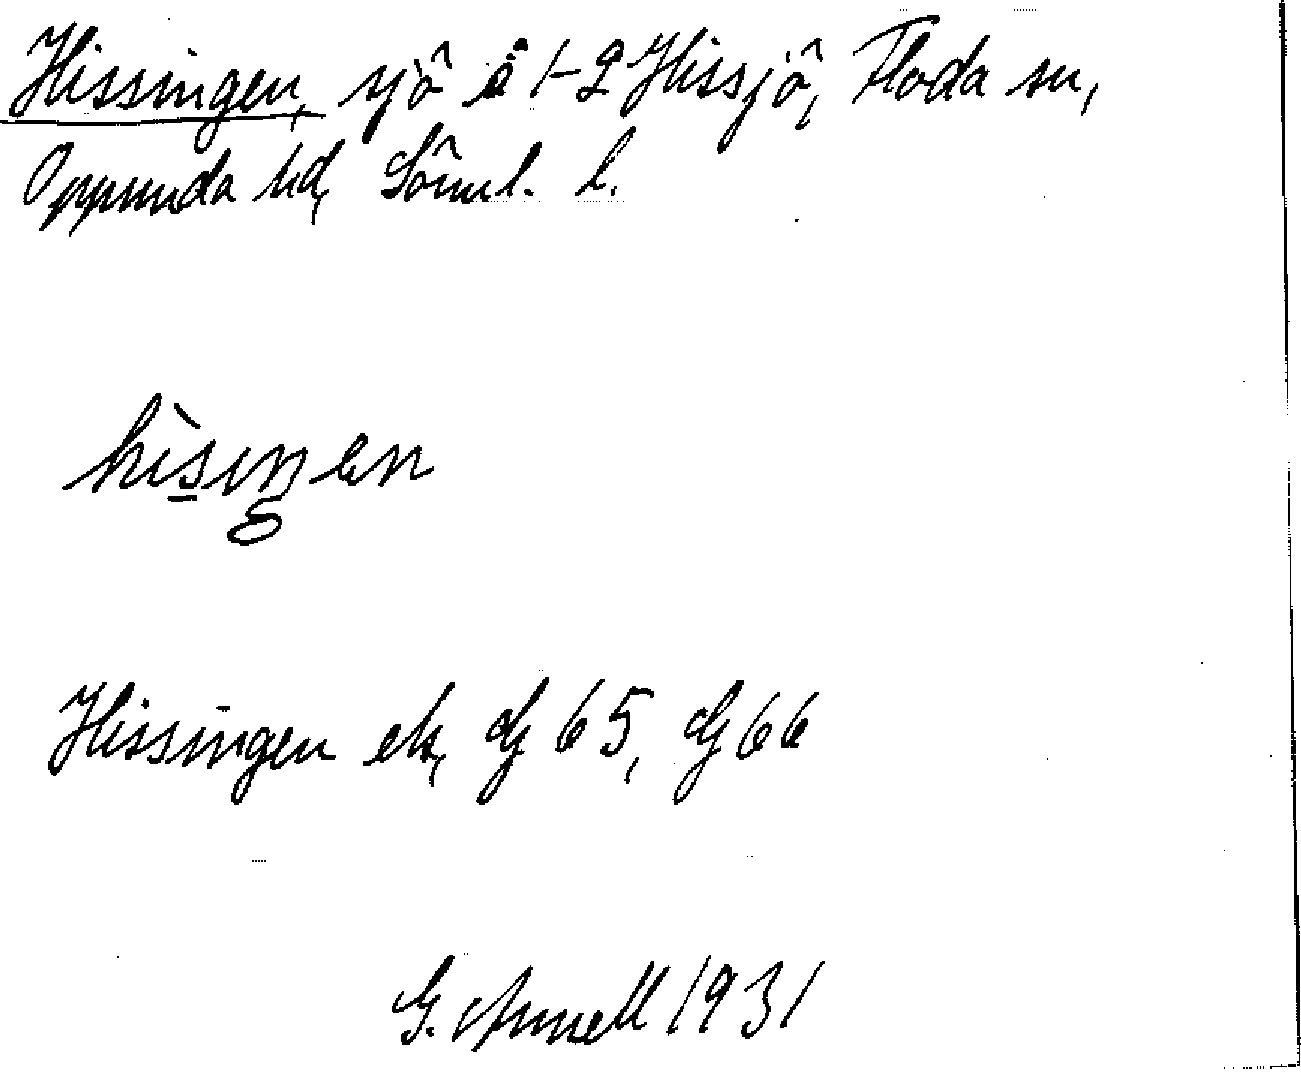 Hissingen, sjö å 1-2 Hissjö, Floda sn,
Oppunda hd, Söml. l.
hìsiŋen
Hissingen ek, dJ 65, dJ 66
G. Annell 1931